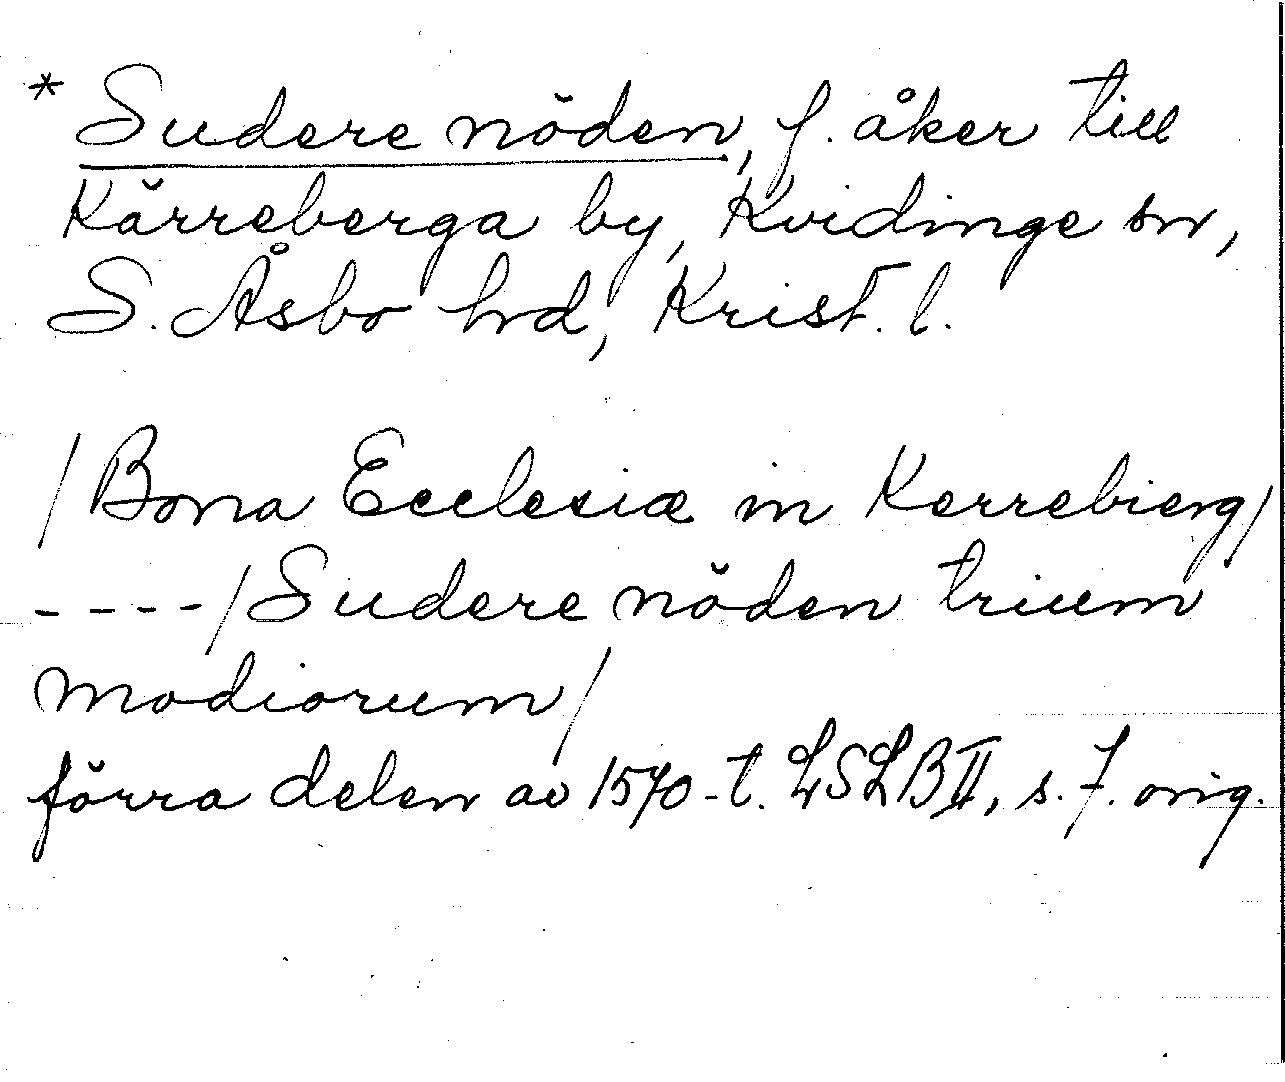 * Sudere nöden, f. åker till
Kärreberga by, Kvidinge sn,
S. Åsbo hd, Krist. l.
/Bona Ecclesiæ in Kerrebierg/
----/Sudere nöden trium
modiorum/
förra delen av 1570-t. LSLB II, s. 7. orig.